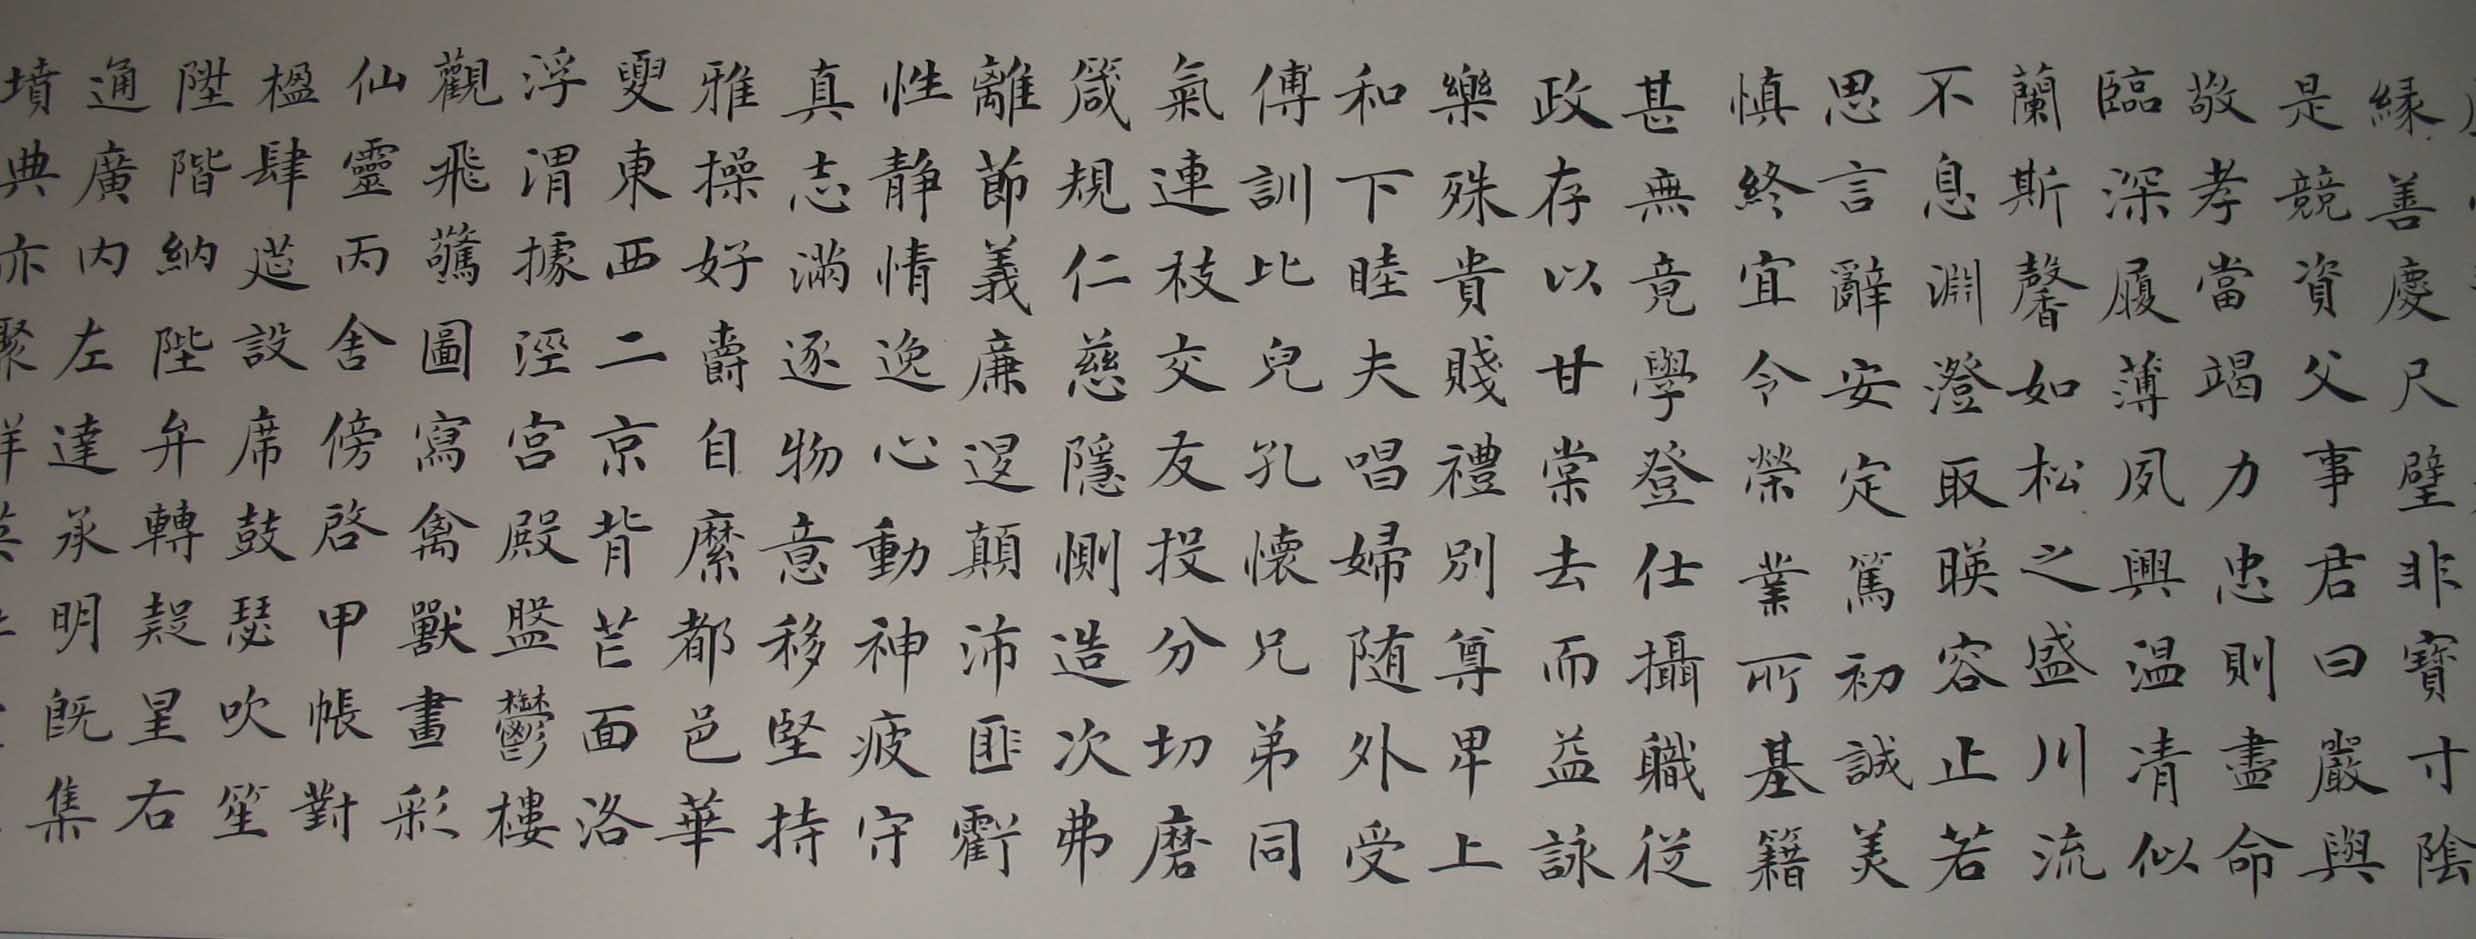 縁善慶尺璧非寶寸陰
是競資父事君曰嚴與
敬孝當竭力忠則盡命
臨深履薄夙興温清似
蘭斯馨如松之盛川流
不息淵澄取暎容止若
思言辭安定篤初誠美
慎終宜令榮業所基籍
甚無竟學登仕攝職從
政存以甘棠去而益詠
樂殊貴賤禮別尊卑上
和下睦夫唱婦随外受
傅訓比兒孔懷兄弟同
氣連枝交友投分切磨
箴規仁慈隱惻造次弗
離節義廉退顛沛匪虧
性静情逸心動神疲守
真志滿逐物意移堅持
雅操好爵自縻都邑華
夏東西二京背芒面洛
浮渭據涇宫殿盤鬱樓
觀飛驚圖寫禽獸畫彩
仙靈丙舍傍啓甲帳對
楹肆筵設席鼓瑟吹笙
陞階納陛弁轉疑星右
通廣内左達承明既集
墳典亦聚